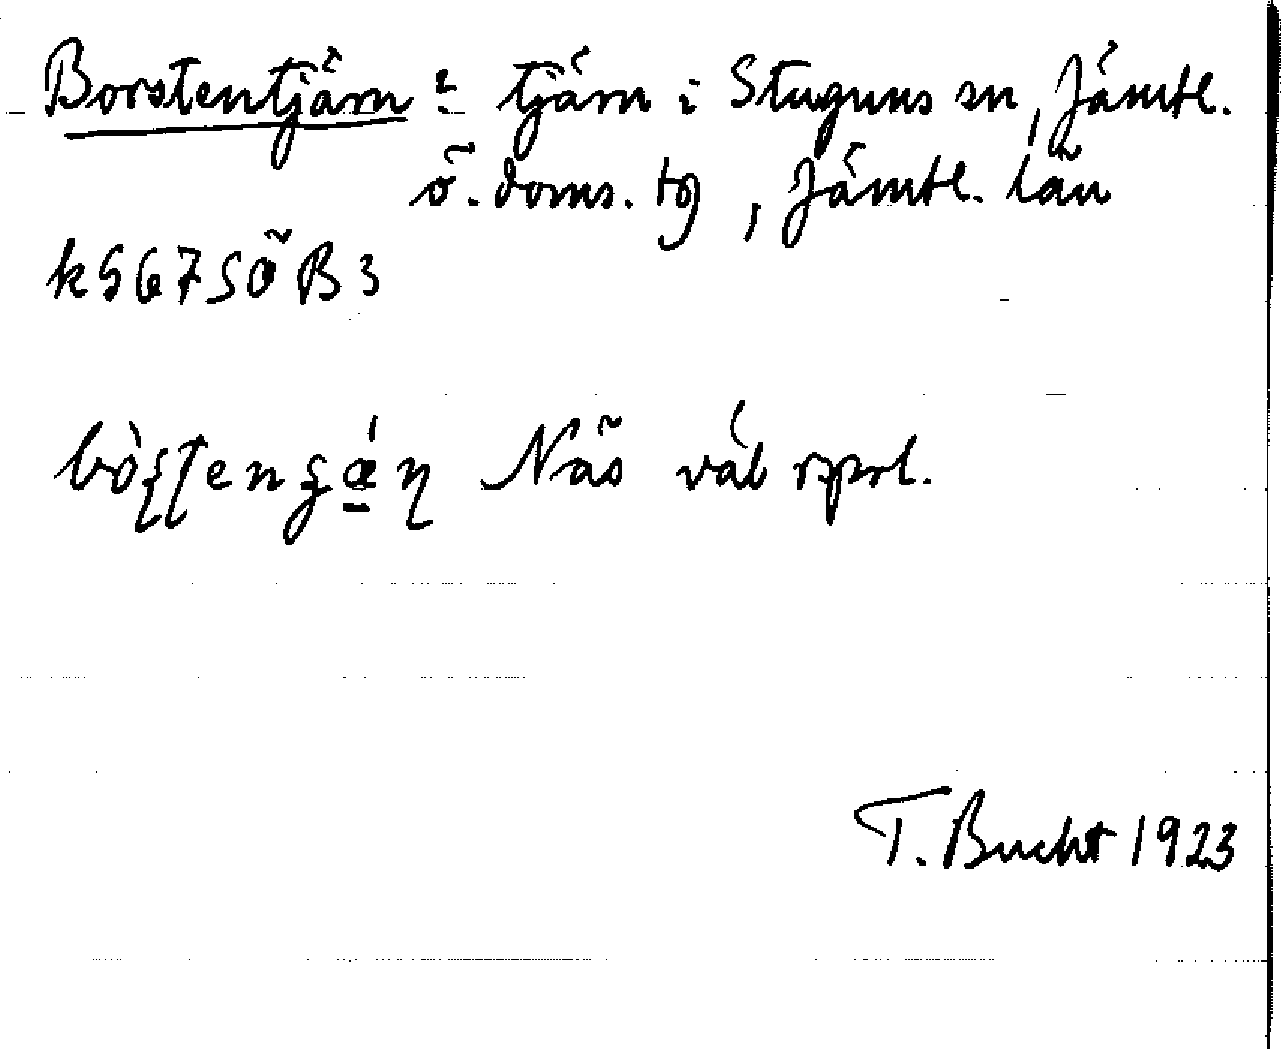 Borstentjärn : tjärn i Stuguns sn, Jämtl.
ö. doms. tg, Jämtl. län
k 5675 ö B 3
Näs väl rspr l.
T. Bucht 1923